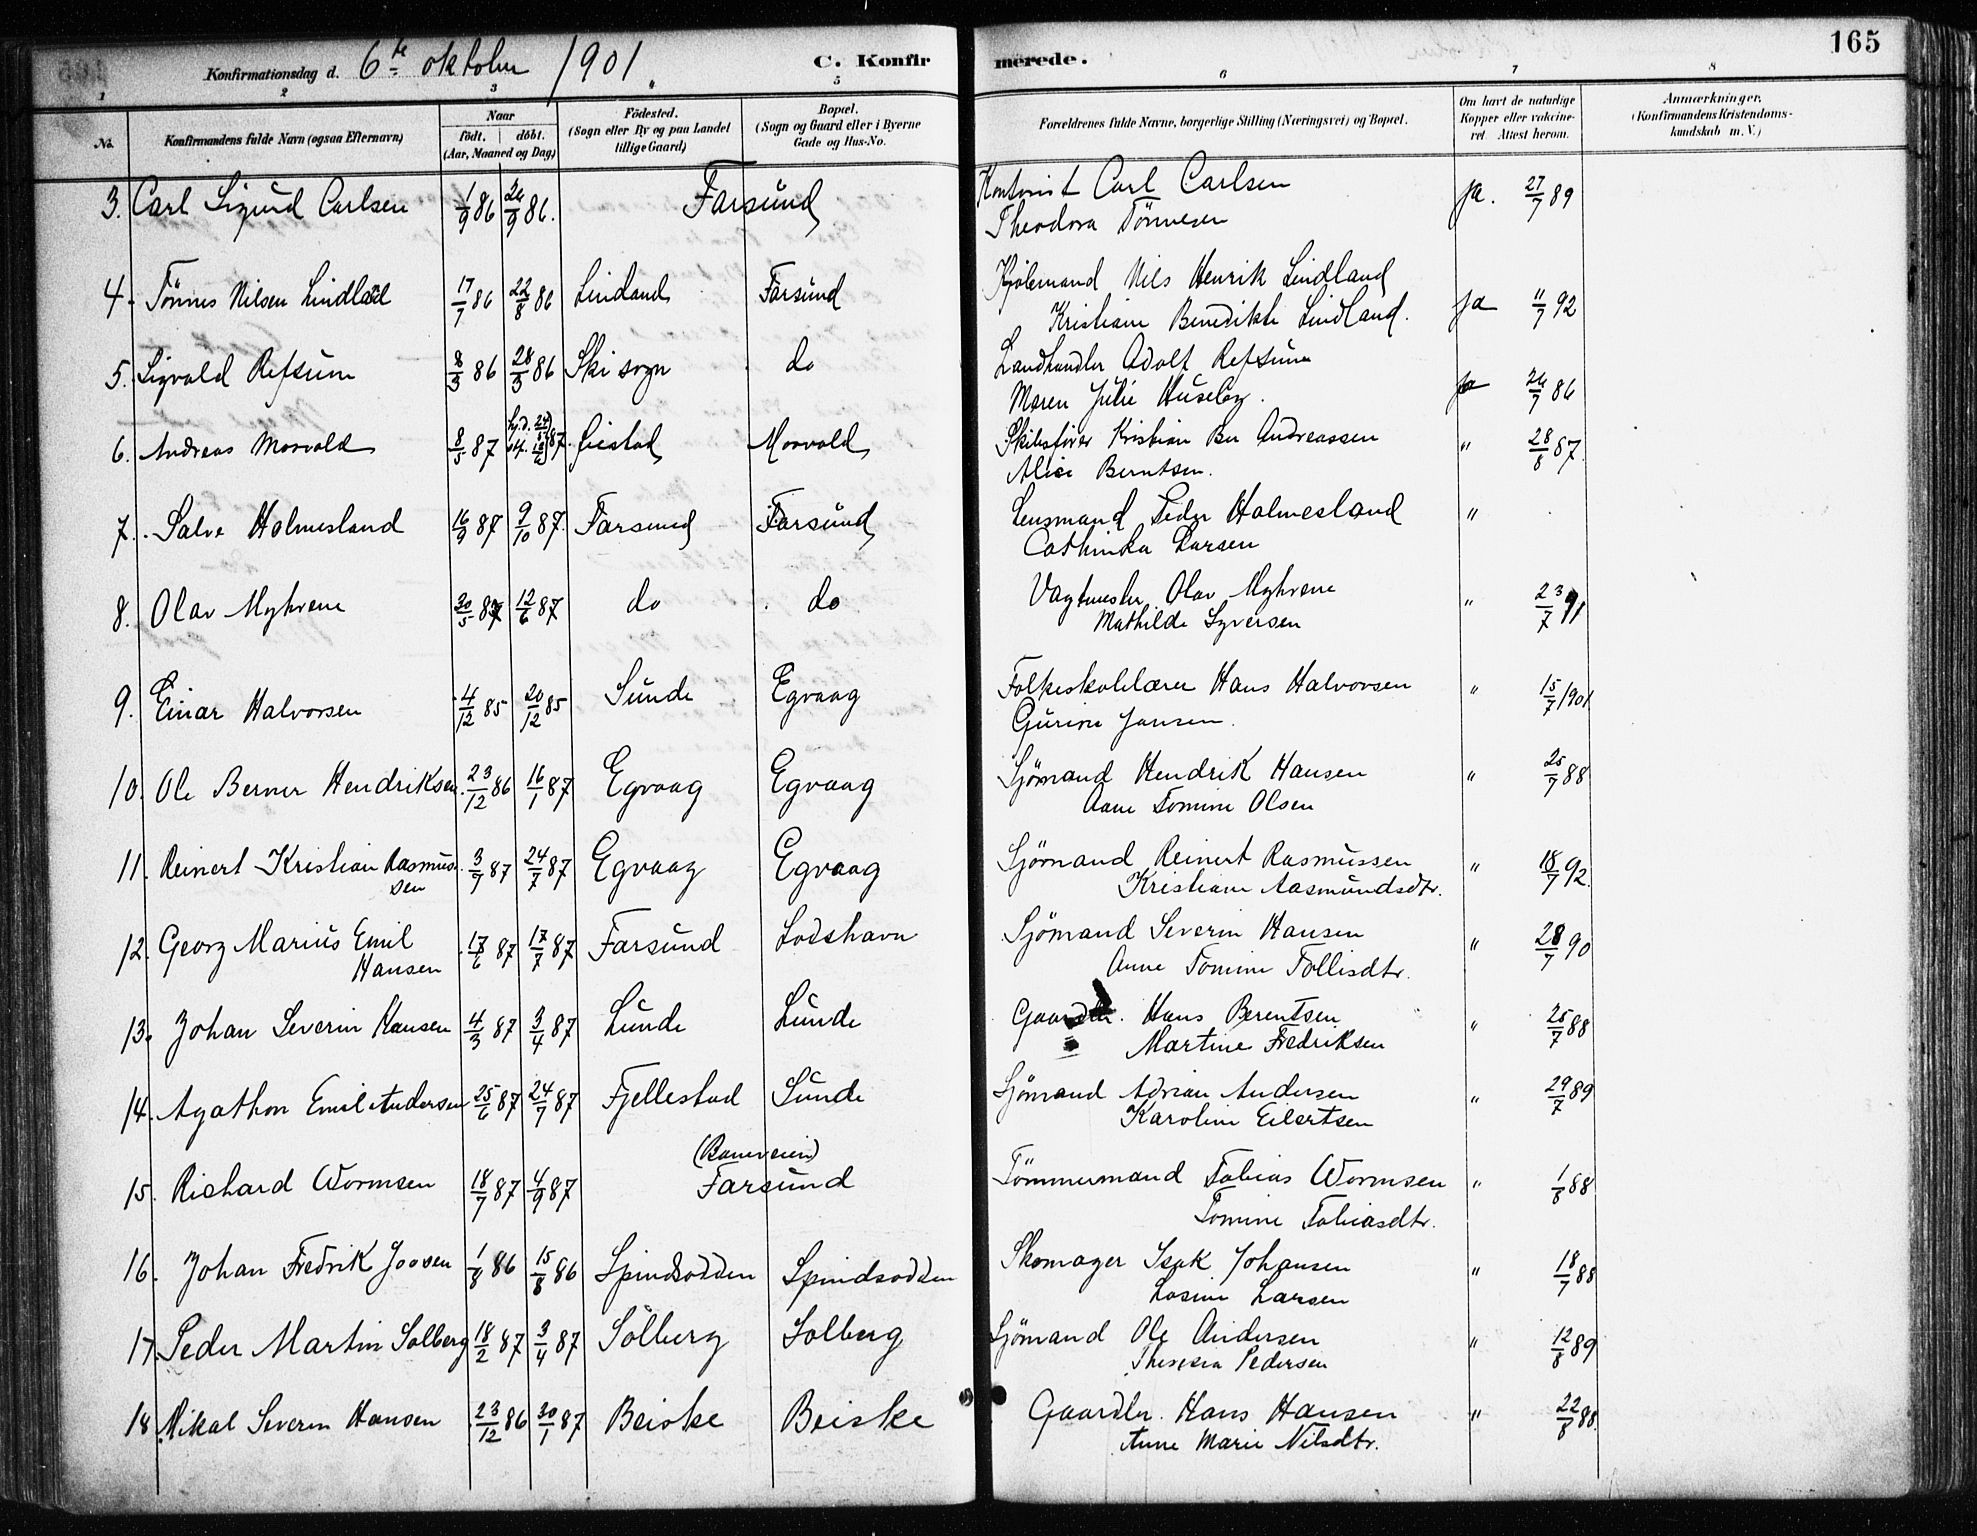 165
Konfirmationsdag d. 6te oktober 1901. C. Konfirmerede.
1 2 3 4 5 6 7 8
No. Konfirmandens fulde Navn (ogsaa Efternavn) Naar födt. döbt. (Aar, Maaned og Dag) Födested. (Sogn eller By og paa Landet tillige Gaard) Bopæl. (Sogn og Gaard eller i Byerne Gade og Hus-No. Forældrenes fulde Navne, borgerlige Stilling (Næringsvei) og Bopæl. Om havt de naturlige Kopper eller vakcineret Attest herom. Anmærkninger. (Konfirmandens Kristendomskundskab m. V.)
3. Carl Sigurd Carlsen 1/9 86 26/9 86. Farsund Kontorist Carl Carlsen ja. 27/7 89
Theodora Tönnesen
4. Tönnes Nilsen Lindland 17/7 86 22/8 86 Lindland Farsund Kjölemand Nils Henrik Lindland
Kristiane Benedikte Lindland. ja 11/7 92
5. Sigvald Refsum 8/3 86 28/3 86 Ski sogn do Landhandler Adolf Refsum
Maren Julie Huseby. ja 26/7 86
6. Andreas Morvold 8/5 87 Morvold Skibsförer Kristian Ber Andreassen " 28/8 87.
Alice Berntsen.
7. Salve Holmesland 16/9 87 9/10 87. Farsund Farsund Lensmand Peder Holmesland "
Cathinka Larsen
8. Olav Myhrene 30/5 87 12/6 87 do do Vagtmester Olav Myhrene " 23/7 91
Mathilde Syversen
9. Einar Halvorsen 4/12 85 20/12 85 Sunde Egvaag Folkeskolelærer Hans Halvorsen " 15/7 1901
Gurine Jansen.
10. Ole Berner Hendriksen 23/12 86 16/1 87 Egvaag Egvaag Sjömand Hendrik Hansen " 25/7 88
Aane Tomine Olsen
11. Reinert Kristian Rasmussen 3/7 87 24/7 87 Egvaag Egvaag Sjömand Reinert Rasmussen " 18/7 92.
Kristiane Aasmundsdtr.
12. Georg Marius Emil Hansen 17/6 87 17/7 87 Farsund Lodshavn Sjömand Severin Hansen " 28/7 90
Anne Tomine Tollisdtr.
13. Johan Severin Hansen 4/3 87 3/4 87 Lunde Lunde Gaardbr. Hans Berentsen " 25/7 88
Martine Fredriksen
14. Agathon Emil Andersen 25/6 87 24/7 87 Fjellestad Sunde Sjömand Adrian Andersen " 29/7 89
Karoline Eilertsen
15. Richard Wormsen 18/7 87 4/9 87 (Baneveien) Farsund Tömmermand Tobias Wormsen " 1/8 88
Tomine Tobiasdtr.
16. Johan Fredrik Joosen 1/8 86 15/8 86 Spindsodden Spindsodden Skomager Isak Johansen " 18/7 88
Losine Larsen
17. Peder Martin Solberg 18/2 87 3/4 87 Solberg Solberg Sjömand Ole Andersen " 12/8 89
Theresia Pedersen
18. Mikal Severin Hansen 23/12 86 30/1 87 Beiske Beiske Gaardbr. Hans Hansen " 22/8 88.
Anne Marie Nilsdtr.